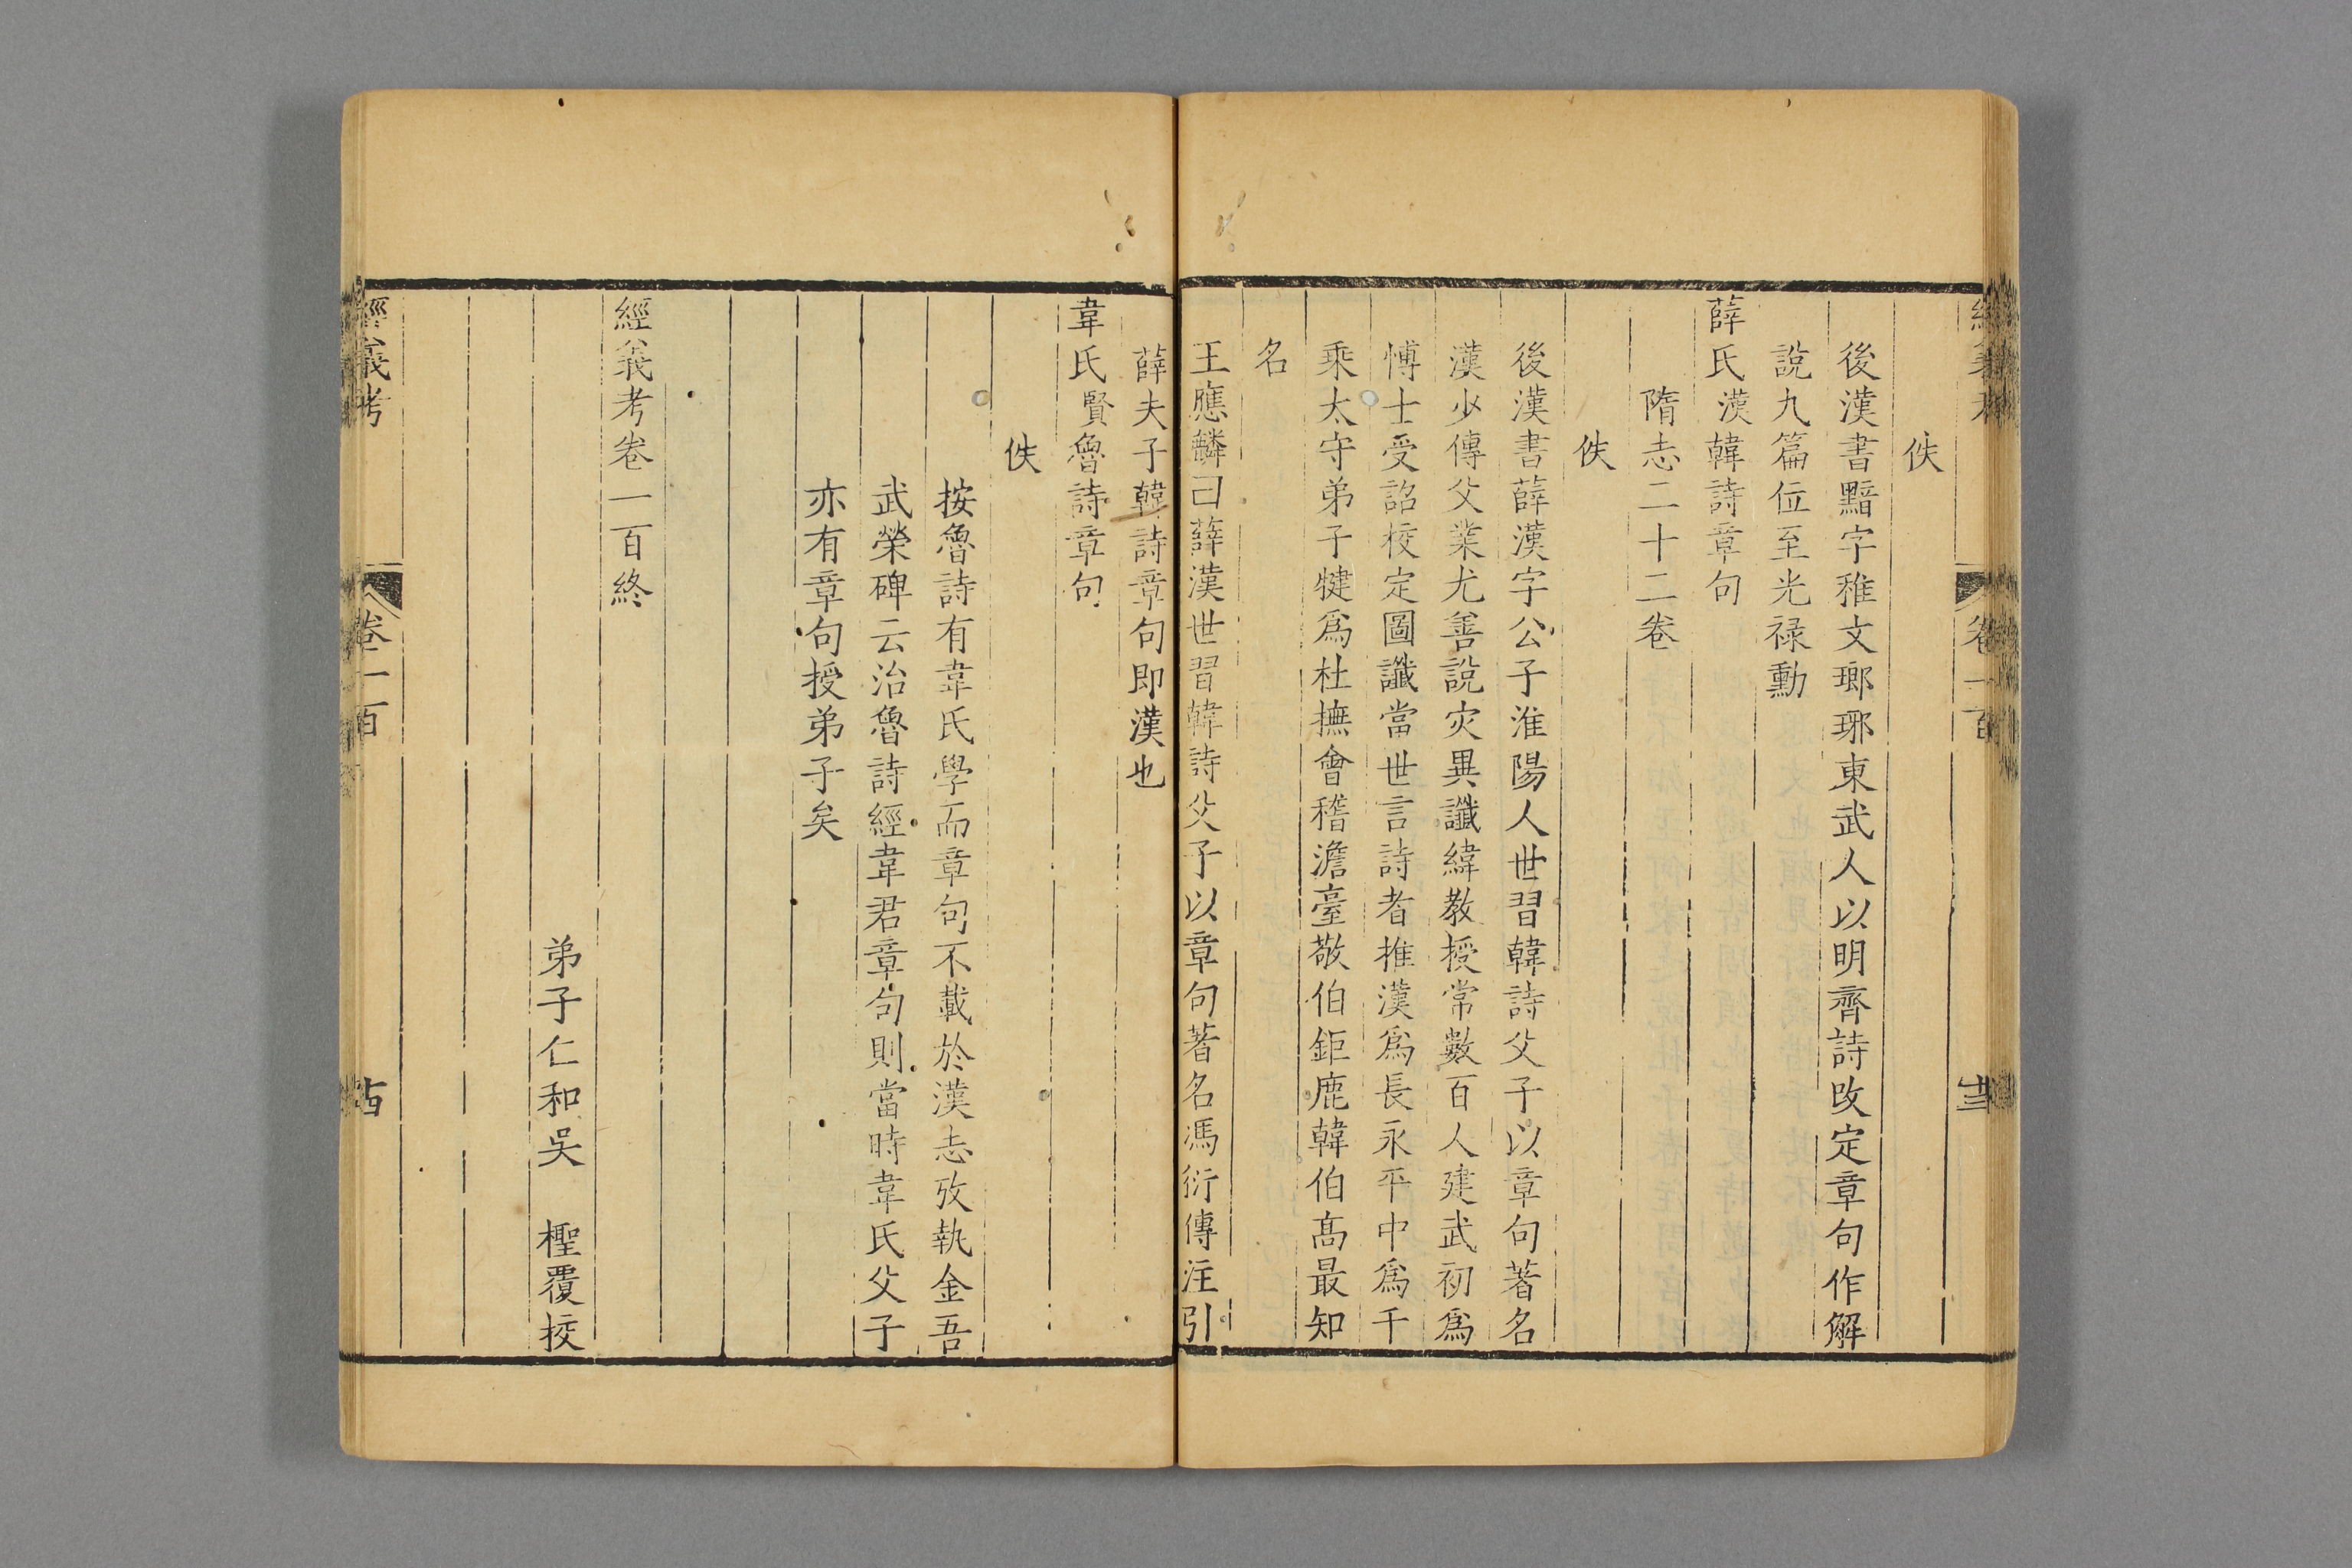 經義考
卷一百
佚
後漢書黯字稚文瑯琊東武人以明齊詩改定章句作解
說九篇位至光祿勳
薛氏漢韓詩章句
隋志二十二卷
佚
後漢書薛漢字公子淮陽人世習韓詩父子以章句著名
漢少傳父業尤善說灾異讖緯教授常數百人建武初爲
博士受詔校定圖讖當世言詩者推漢爲長永平中爲千
乘太守弟子犍爲杜撫會稽澹臺敬伯鉅鹿韓伯高最知
名
王應麟曰薛漢世習韓詩父子以章句著名馮衍傳注引
薛夫子韓詩章句即漢也
韋氏賢魯詩章句
佚
按魯詩有韋氏學而章句不載於漢志攷執金吾
武榮碑云治魯詩經韋君章句則當時韋氏父子
亦有章句授弟子矣
經義考卷一百終
弟子仁和吳 檉覆挍
經義考
卷一百